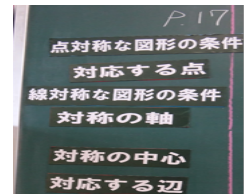 P.17
点対称な図形の条件
対応する点
線対称な図形の条件
対称の軸
対称の中心
対応する辺